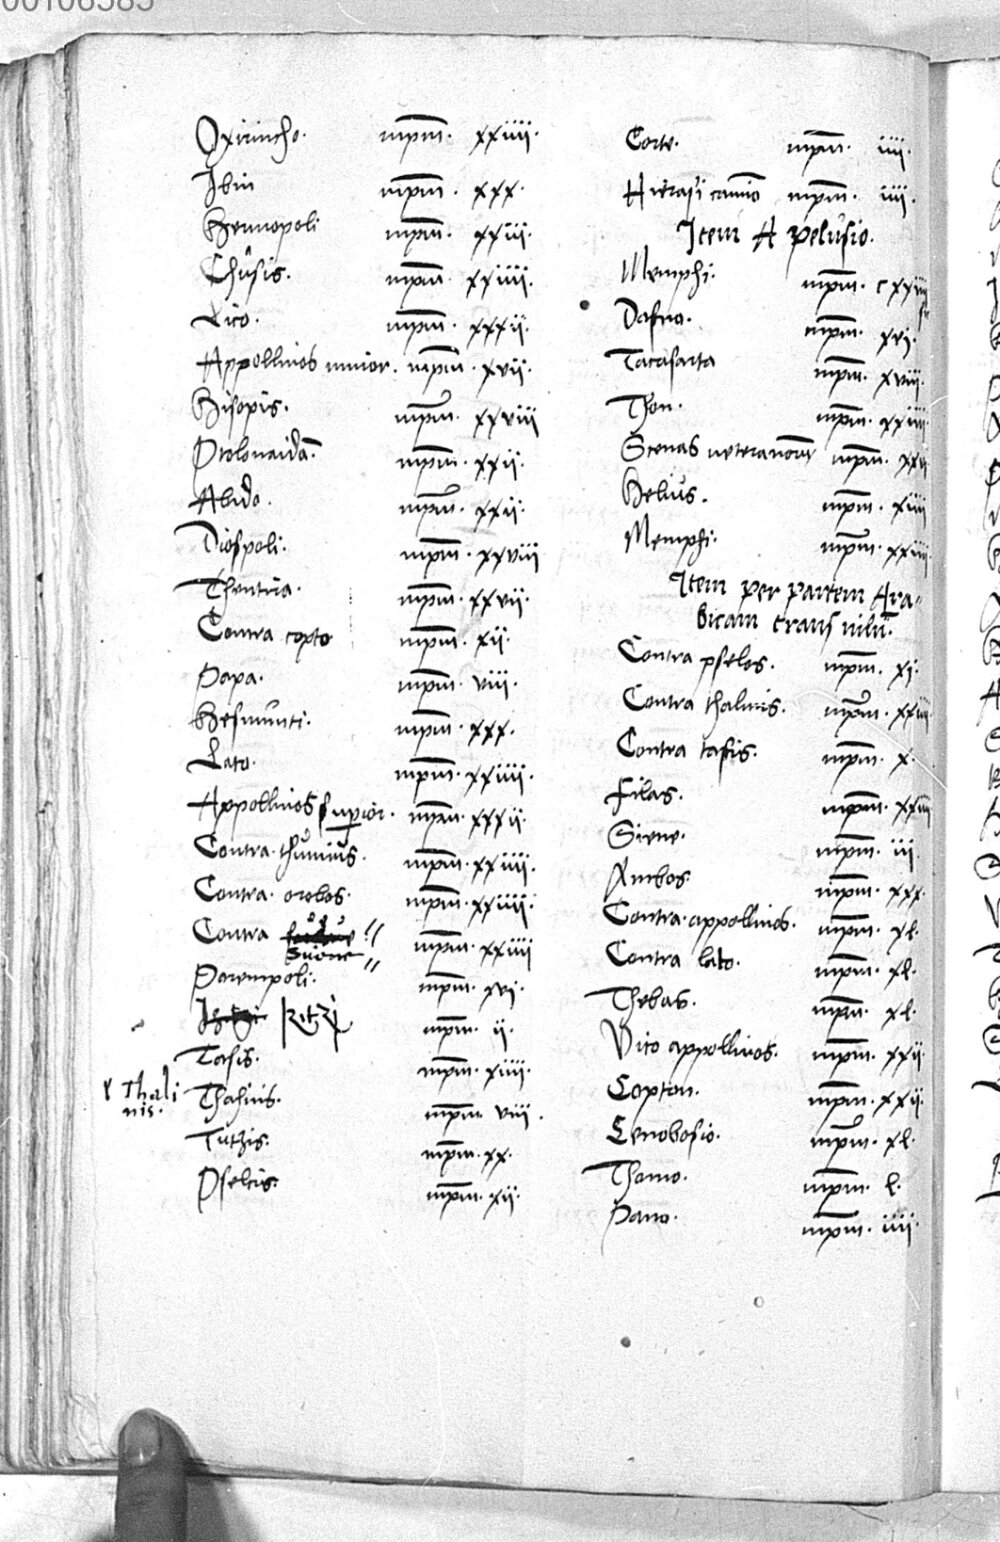 00108385
Oxirincho. mpm. xxiiii.
Ibin mpm. xxx.
Hermopoli mpm. xxiii.
Chusis. mpm. xxiiii.
Lico. mpm. xxxii.
Appollinos minior. mpm. xvii.
Hisopis. mpm. xxviii
Ptolomaida. mpm. xxii.
Abido. mpm. xxii.
Diospoli. mpm. xxviii
Thentira. mpm. xxvii.
Contra copto mpm. xii.
Papa. mpm. viii.
Hesmunti. mpm. xxx.
Lato. mpm. xxiiii.
Appollinos superior. mpm. xxxii.
Contra. thumuis. mpm. xxiiii.
Contra. orobos. mpm. xxiiii.
Contra suone mpm. xxiiii
Parempoli. mpm. xvi.
Ritzi mpm. ii.
Tasis. mpm. xiiii.
Thaliuis. mpm. viii.
Thali
nis.
Tutzis. mpm. xx.
Pselcis. mpm. xii.
Corte. mpm. iiii.
Hierasi camio mpm. iiii.
Item A pelusio.
Memphi. mpm.
Dafno. mpm. xvi.
Tacasarta mpm. xviii.
Thou. mpm. xxiiii
Scenas veteranorum mpm. xxvi
Helius. mpm. xiiii
Memphi. mpm. xxiiii
Item per partem Ara-
bicam trans nilu.
Contra pselos. mpm. xi.
Contra thalmis. mpm.
Contra tafis. mpm. x.
Filas. mpm.
Siene. mpm. iii.
Ambos mpm. xxx.
Contra. appollinos. mpm. xl.
Contra lato. mpm. xl.
Thebas. mpm. xl.
Vico appollinos. mpm. xxii.
Copton. mpm. xxii.
Cenobosio. mpm. xl.
Thomo. mpm. l.
Pano. mpm. iiii.